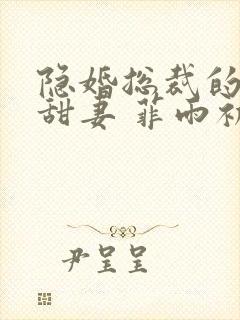 隐婚总裁的
甜妻 菲雨初
尹呈呈